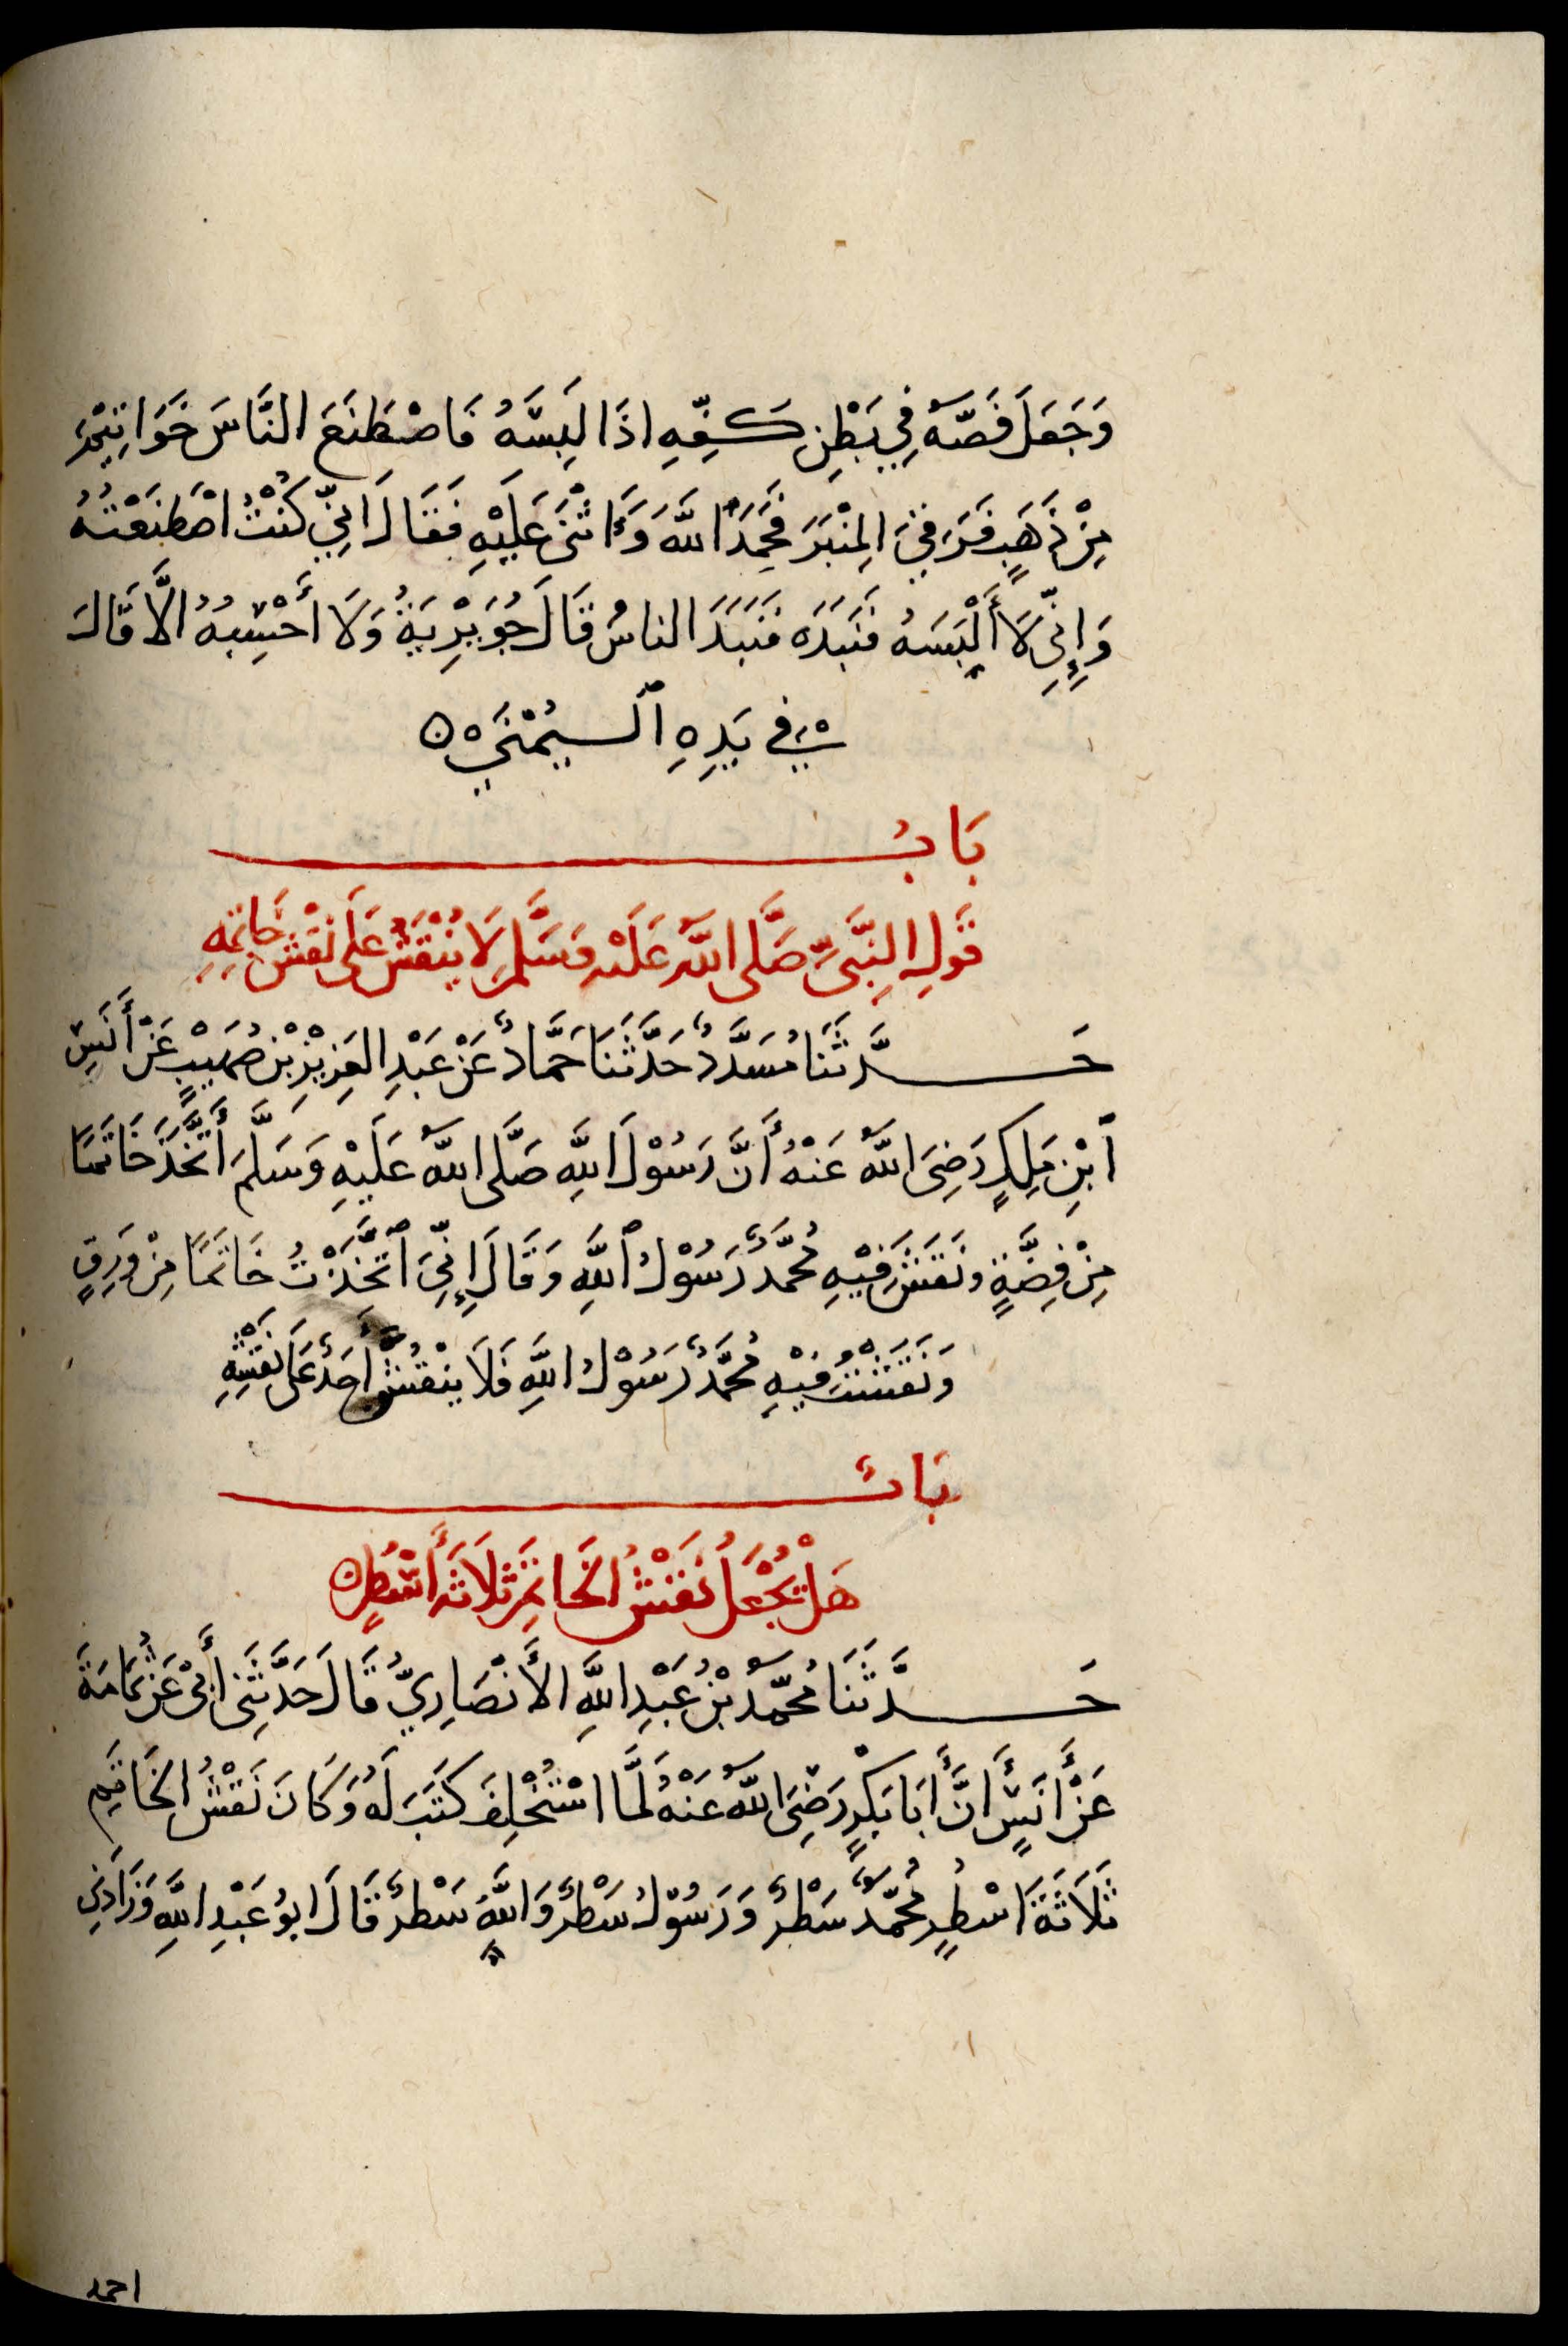 وَجَعَلَ فَصَّهُ فِي بَطْنِ كَفِّهِ اذَا لَبِسَهُ فَاصْطَنَعَ النَّاسَ خَوَاتِيْمَ
مِنْ ذَهَبٍ فَرَقِيَ المِنْبَرَ فَحَمِدَ اللهَ وَاَثْنَى عَلَيْهِ فَقَالَ اِنِّي كُنْتُ اصْطَنَعْتُهُ
وَإِنِّى لَا أَلْبَسَهُ فَنَبَذَهُ فَنَبَذَ الناسُ قَالَ جُوَيْرِيَةُ وَلَا أَحْسِبُهُ الَّا قَالَ
فِي يَدِهِ ٱلْيُمْنَى
بَابُ
قَولِ النَّبِىِّ صَلَّى اللهُ عَلَيْهِ وَسَلَّمَ لَا يُنْقَشُ عَلَى نَقْشِ خَاتَمِهِ
حَدَّثَنَا مُسَدَّدٌ حَدَّثَنَا حَمَّادٌ عَنْ عَبْدِ العَزِيْزِ بْنِ صُهَيْبٍ عَنْ أَنَسِ
ٱبْنِ مَلِكٍ رَضِىَ اللهُ عَنْهُ أَنَّ رَسُوْلَ اللهِ صَلَّى اللهُ عَلَيْهِ وَسَلَّمَ اتَّخَذَ خَاتَمًا
مِنْ فِضَّةٍ وَنَقَشَ فِيْهِ مُحَمَّدٌ رَسُوْلُ ٱللهِ وَقَالَ إِنِّىَ ٱتَّخَذْتُ خَاتَمًا مِنْ وَرِقٍ
وَنَقَشْتُ فِيْهِ مُحَمَّدٌ رَسُوْلُ اللهِ فَلَا يَنْقُشَنَّ أَحَدٌ عَلَى نَقْشِهِ
بَابٌ
هَلْ يُجْعَلُ نَقْشُ الخَاتَمِ ثَلَاثَةَ أَسْطُرٍ
حَدَّثَنَا مُحَمَّدُ بْنُ عَبْدِ اللهِ الأَنْصَارِيُّ قَالَ حَدَّثَنِى أَبِى عَنْ ثُمَامَةَ
عَنْ أَنَسٍ أَنَّ أَبَا بَكْرٍ رَضِىَ اللهُ عَنْهُ لَمَّا اسْتُخْلِفَ كَتَبَ لَهُ وَكَانَ نَقْشُ الخَاتَمِ
ثَلَاثَةَ اَسْطُرٍ مُحَمَّدٌ سَطْرٌ وَرَسُوْلُ سَطْرٌ وَاللهُ سَطْرٌ قَالَ ابُو عَبْدِ اللهِ وَزَادَنِى
احمد